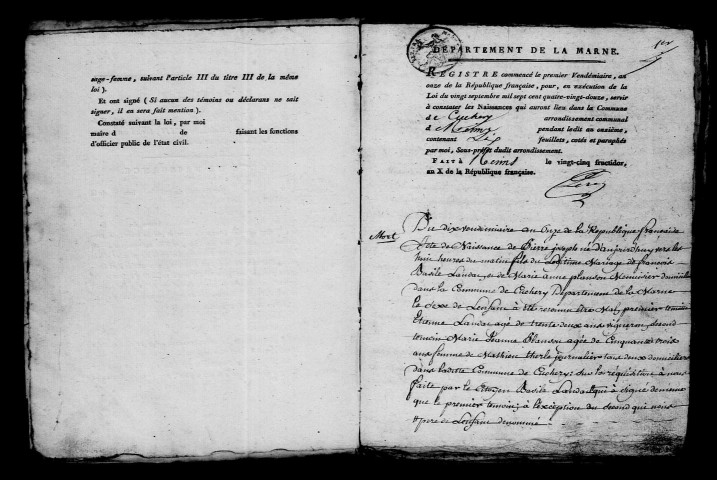 sage-femme, suivant l'article III du titre III de la même
loi ).
Et ont signé ( Si aucun des témoins ou déclarans ne sait
signer, il en sera fait mention ).
Constaté suivant la loi, par moi
maire d de faisant les fonctions
d'officier public de l'état civil.
1er
DÉPARTEMENT DE LA MARNE.
REGISTRE commencé le premier Vendémiaire, an
onze de la République française, pour, en exécution de la
Loi du vingt septembre mil sept cent quatre-vingt-douze, servir
à constater les Naissances qui auront lieu dans la Commune
de Cuchery arrondissement communal
d pendant ledit an onzième,
contenant feuillets, cotés et paraphés
par moi, Sous-préfet dudit arrondissement.
FAIT à Reims le vingt-cinq fructidor,
an X de la République française.
Mort
Du dix vendimiaire an Onze de la Republique francaise
Acte de Naissance de Pierre joseph né d'aujourduy vers les
huit heures du matin fils du Legitime Mariage de francois
Basile Landa et de Marie anne planson Meunier domicilié
dans la Commune de Cuchery Departement de la Marne
le sexe de Lenfant à été reconnu être Mal, premier temoin
Etienne Landa agé de trente deux ans vigneron, second
temoin Marie Jeanne Planson agée de Cinquante trois
ans femme de Mathieu journalier tous deux domiciliés
dans ladite Commune de Cuchery: sur la réquisition à nous
faitte par le Citoyen Basile Landa qui à signé de meme
que le premier temoin, à l'exception du second qui nous
pere de Lenfant denommé